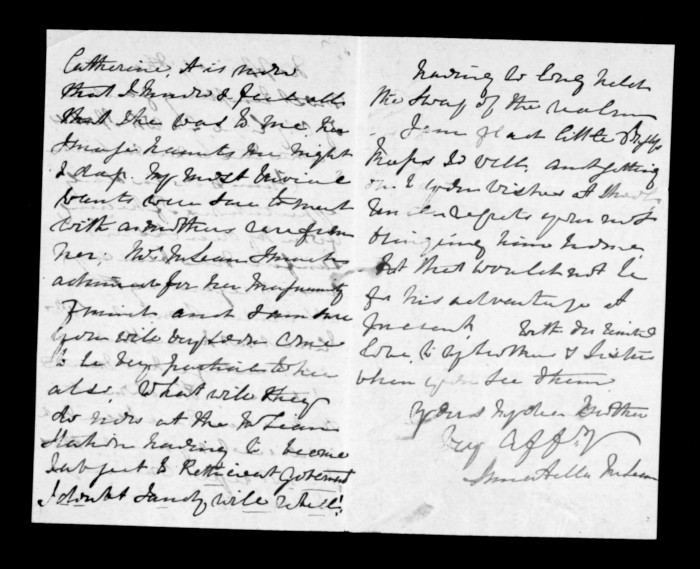 Catherine, it is now
that I know & feel all
that she was to me. her
Image haunts me night
& day. My most trivial
wants were sure to meet
with a mothers care from
her. Mrs McLean I much
admired for her magnanimity
of mind and I am sure
you will very soon come
to be very partial to her
also. What will they
do now at the McLean
Station having to become
subject to Petticoat Goverment
I doubt Sandy will rebell!
having so long held
the sway of the realm
I am glad little
does so well. and getting
on to your wishes at
regrets your not
bringing him home.
But that would not be
for his advantage at
present. With our united
love to my brother & Sister
when you see them
Yours my dear Brother
Very Affly
McLean